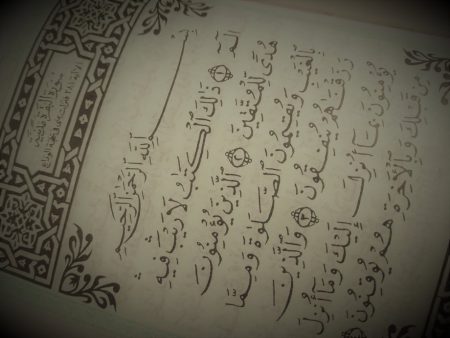 سُورَةُ الْبَقَرَةِ مَدَنِيَّة
إلا آية ٢٨١ فنزلت بمنى في حجة الوداع
بِسْمِ ٱللَّهِ ٱلرَّحْمَٰنِ ٱلرَّحِيمِ
الٓمٓ ۝١ ذَٰلِكَ ٱلْكِتَٰبُ لَا رَيْبَ فِيهِ
هُدًى لِّلْمُتَّقِينَ ۝٢ ٱلَّذِينَ يُؤْمِنُونَ
بِٱلْغَيْبِ وَيُقِيمُونَ ٱلصَّلَوٰةَ وَمِمَّا
رَزَقْنَٰهُمْ يُنفِقُونَ ۝٣ وَٱلَّذِينَ
يُؤْمِنُونَ بِمَآ أُنزِلَ إِلَيْكَ وَمَآ أُنزِلَ
مِن قَبْلِكَ وَبِٱلْءَاخِرَةِ هُمْ يُوقِنُونَ